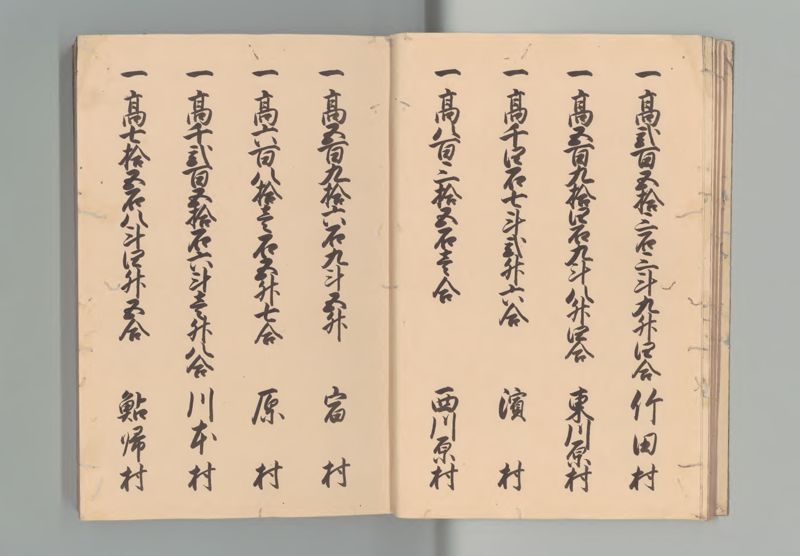 一 高弐百五拾三石三斗九升四合 竹田村
一 高五百九拾四石九斗八升四合 東川原村
一 高千四石七斗弐升六合 濱村
一 高八百三拾五石壱合 西川原村
一 高五百九拾六石九斗五升 宿村
一 高六百八拾壱石五升七合 原村
一 高千弐百五拾石六斗壱升八合 川本村
一 高七拾五石八斗四升五合 鮎帰村